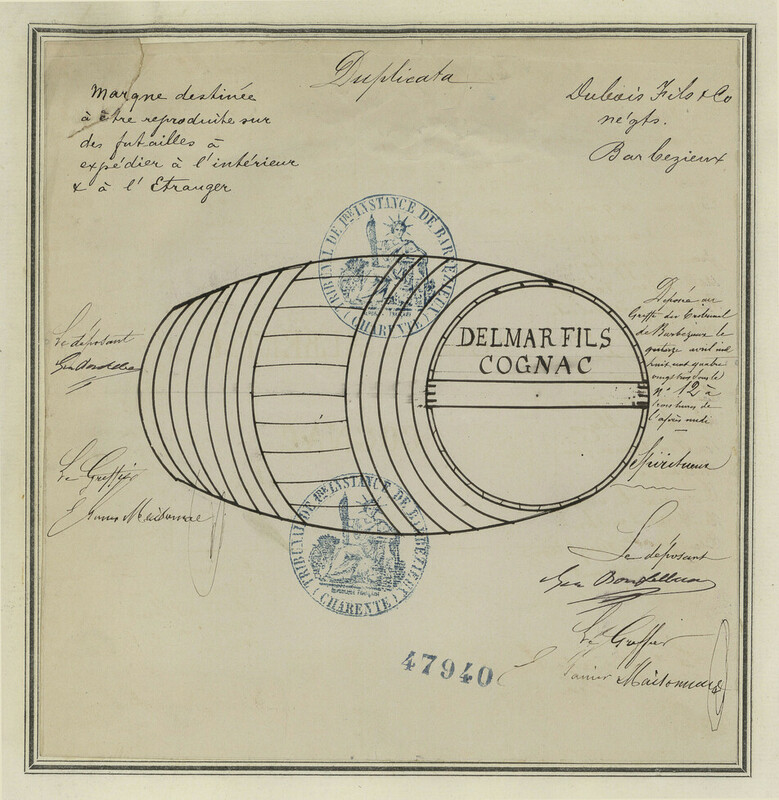 Duplicata
Marque destinée
à être reproduite sur
des futailles à
expédier à l'intérieur
& à l'Etranger
Dubois Fils & Co
négts.
Barbezieux
TRIBUNAL DE 1RE INSTANCE DE BARBEZIEUX
(CHARENTE)
DELMAR FILS
COGNAC
Déposé au
Greffe du Tribunal
de Barbezieux le
quatorze avril mil
huit cent quatre
vingt trois sous le
n° 12 à
trois heures de
l'après midi
Spiritueux
Le déposant
Le Greffier
TRIBUNAL DE 1RE INSTANCE DE BARBEZIEUX
(CHARENTE)
Le déposant
Le Greffier
47940